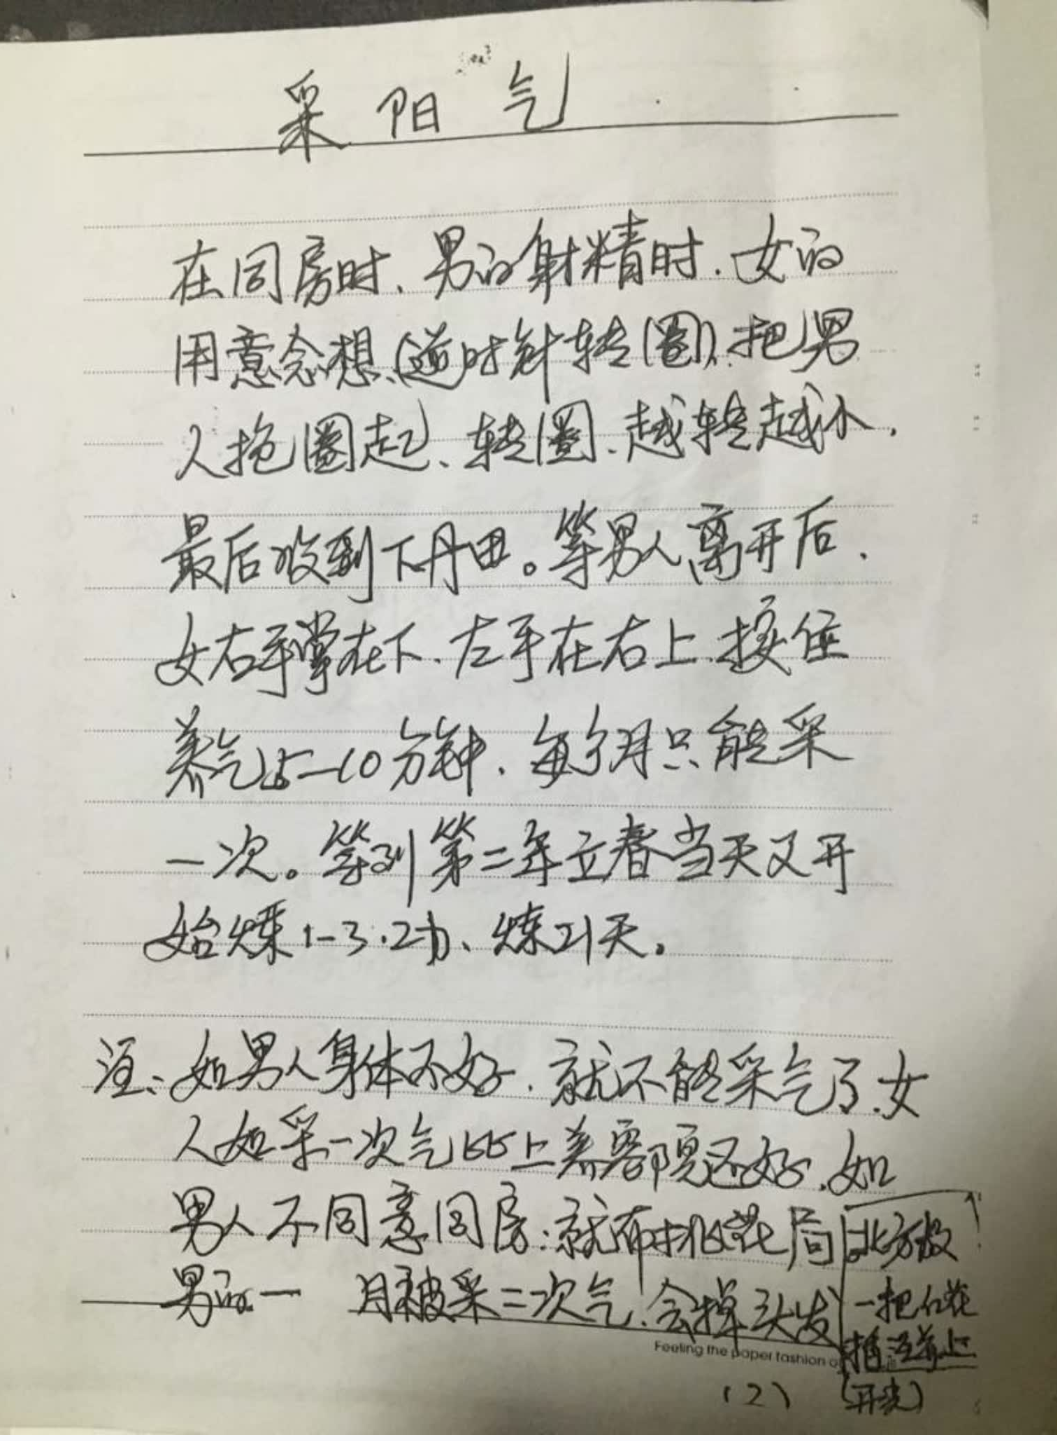 采阳气
在同房时、男的射精时.女的
用意念想、(逆时针转(圈)、把男
人抱圈起、转圈、越转越小.
最后收到下丹田。等男人离开后.
女右手掌在下.左手在右上.按住
养气5—10分钟.每个月只能采
一次。等到第二年立春当天又开
始炼1-3.2功、炼21天。
注:如男人身体不好.就不能采气了.女
人如采一次气比上养容院还好.如
男人不同意同房:就布桃花局
男的一月被采二次气.会掉头发
北方放
一把红花
插 上
(开光)
Feeling the paper fashion
(2)